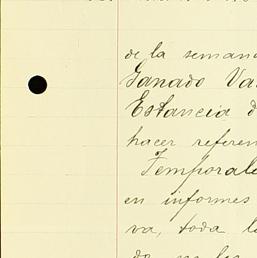 de la semana
Ganado Va
Estancia d
hacer referen
Temporale
en informes
va, toda la